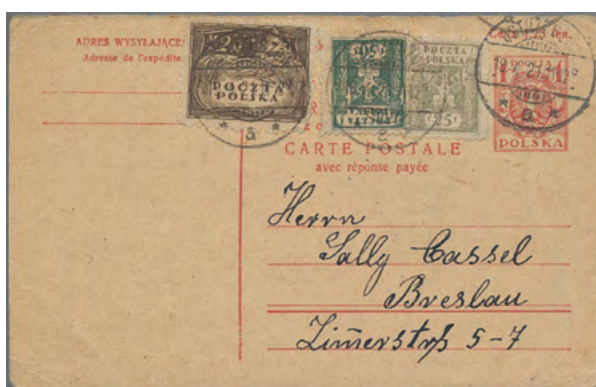 ADRES WYSYŁAJĄCE
Adresse de l'expédite
2
POCZTA
POLSKA
50
POCZTA
POLSKA
POCZTA
25f
a
a
POLSKA
CARTE POSTALE
avec réponse payée
Herrn
Sally Cassel
Breslau
5-7